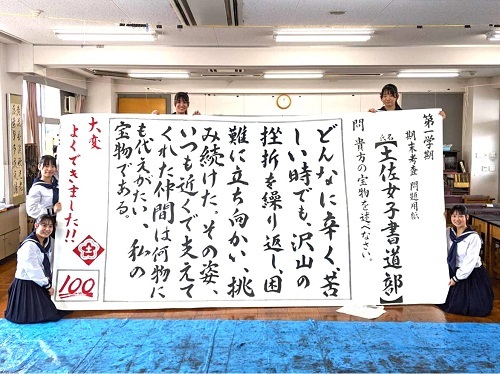 第一学期
期末考査 問題用紙
氏名【土佐女子書道部】
問 貴方の宝物を述べなさい。
どんなに辛く、苦
しい時でも、沢山の
挫折を繰り返し、困
難に立ち向かい、挑
み続けた。その姿、
いつも近くで支えて
くれた仲間は何物に
も代えがたい、私の
宝物である。
大変
よくできました!!
100